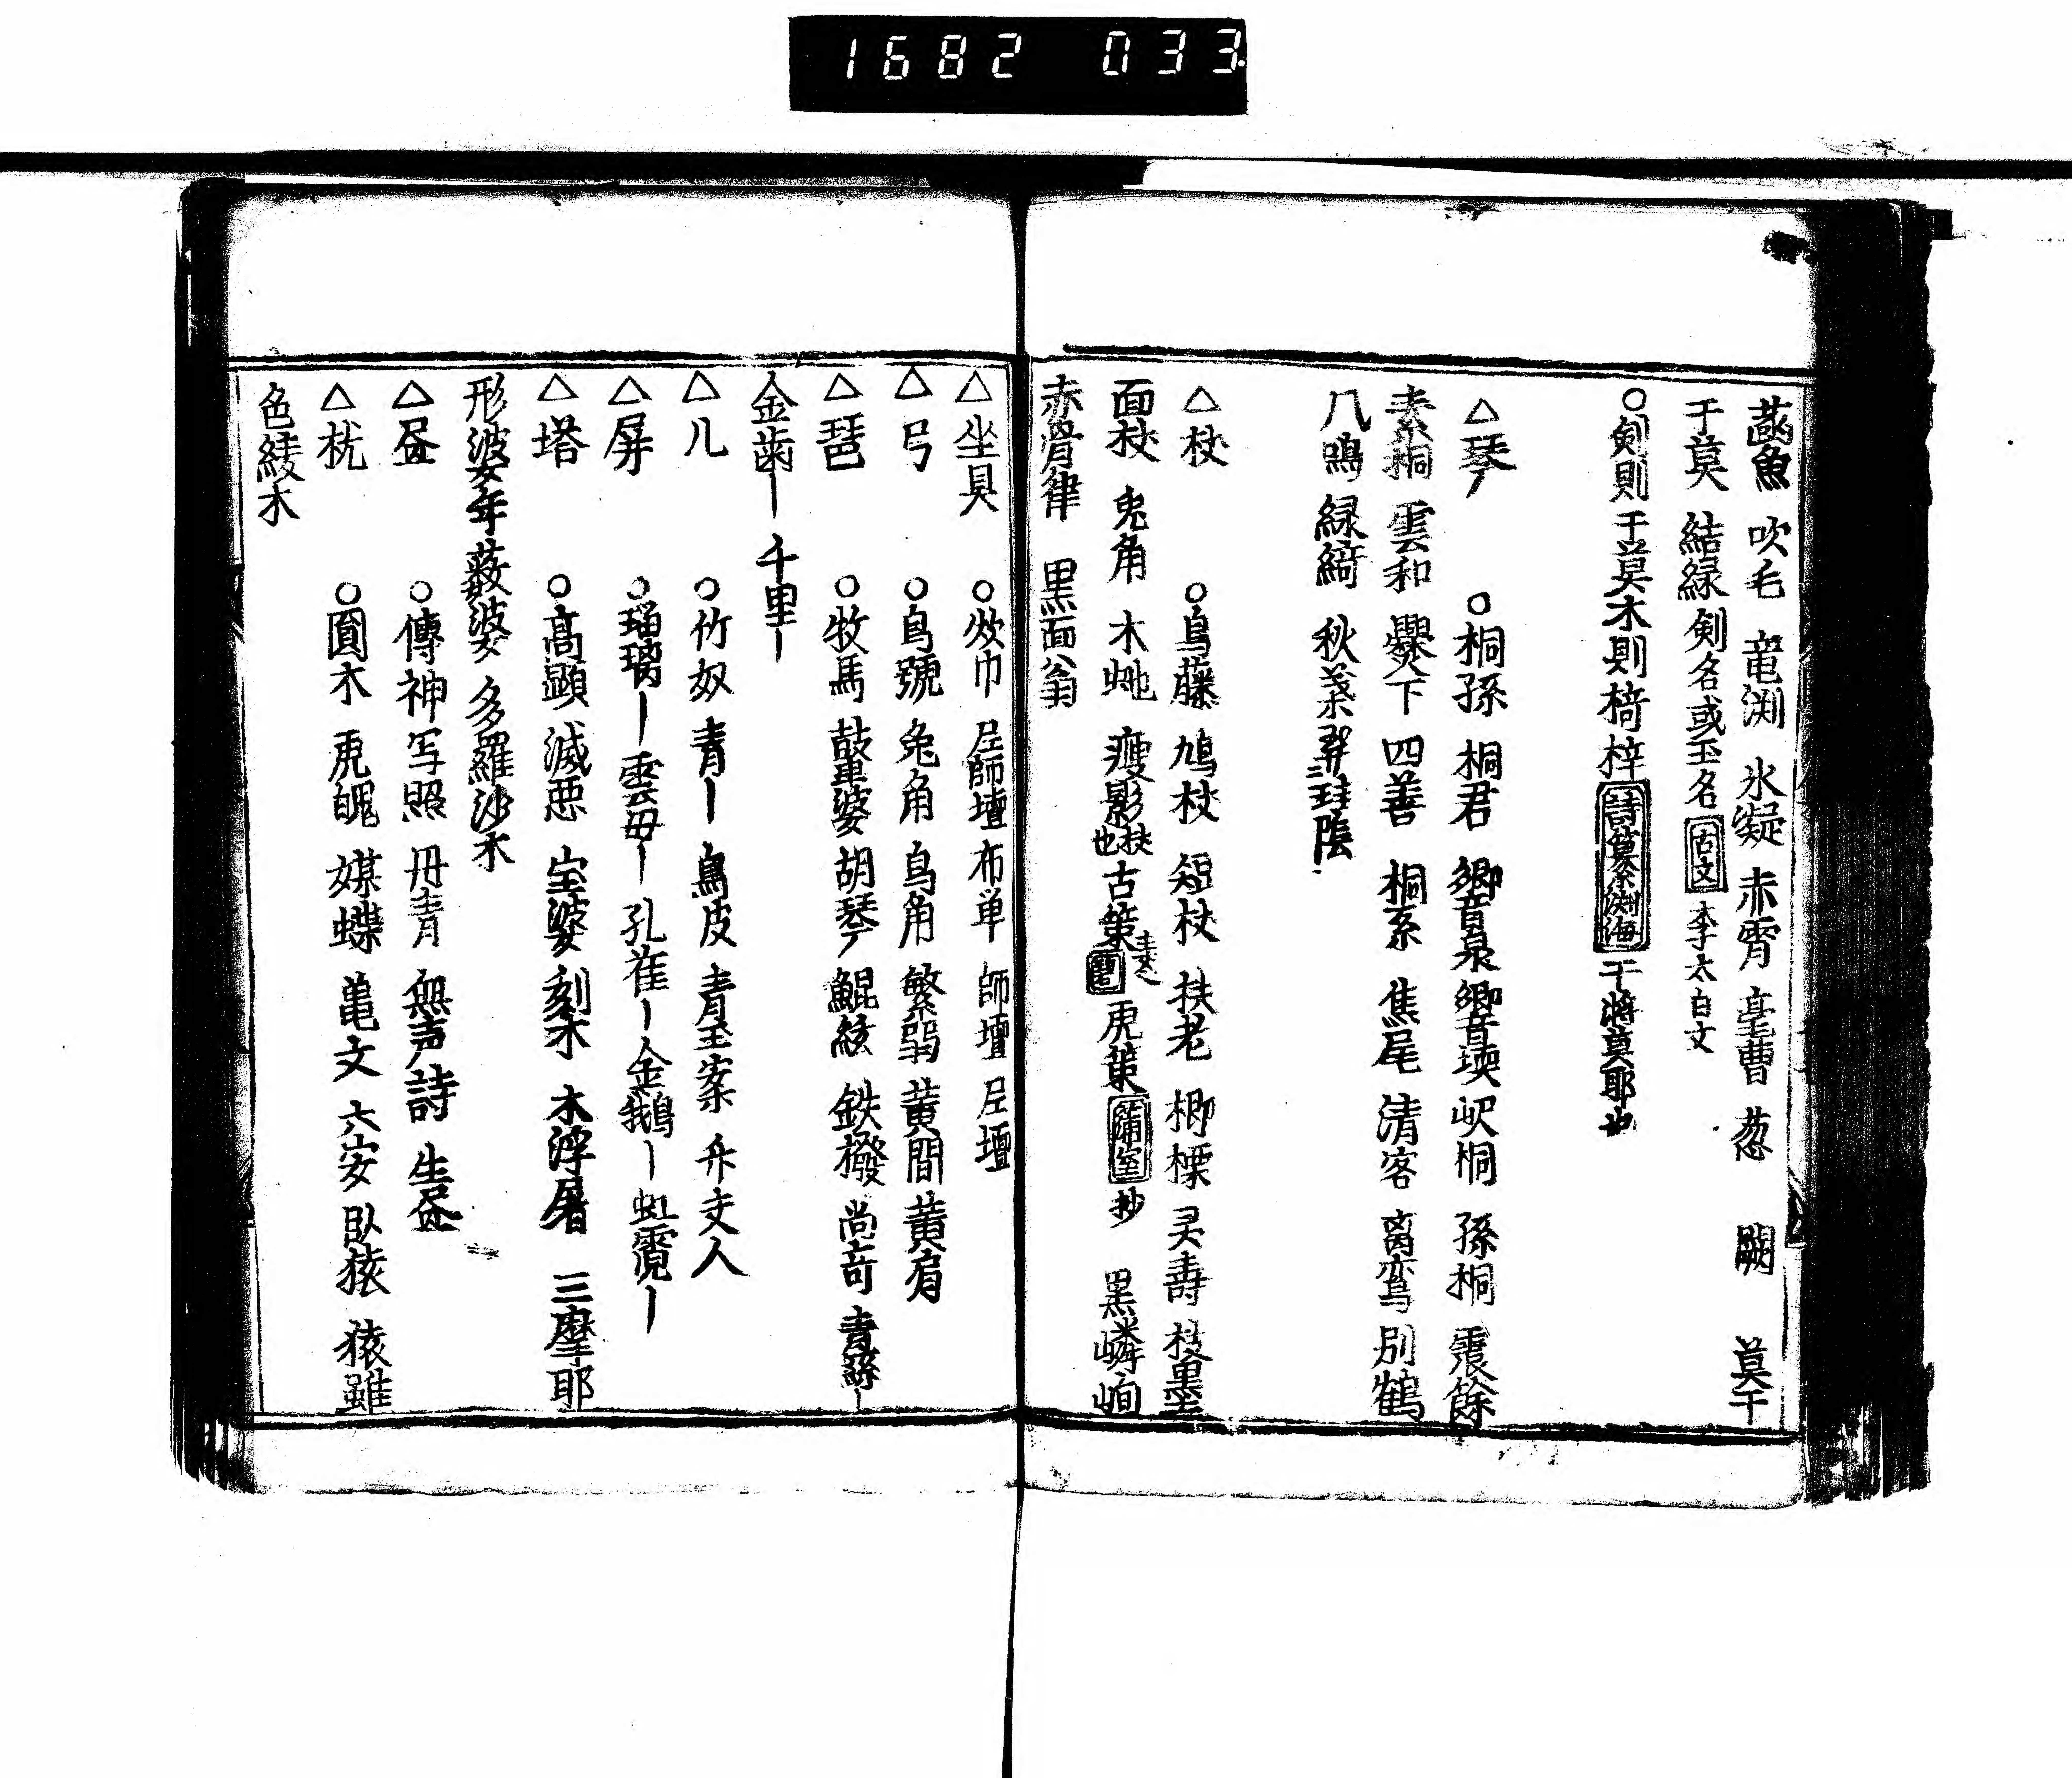 1682 033
魚 吹毛 竜渕 氷凝 赤霄 曹 葱 闕 莫干
干莫 結緑 剣名或玉名 古文 李太白文
○剣則干莫木則椅梓 詩篆渕海 干將莫耶也
△琴 ○桐孫 桐君 響泉 響 嶧桐 孫桐 霹餘
素桐 雲和 爨下 四善 桐系 焦尾 清客 离鸞 別鶴
八鳴 緑綺 秋 珪陰
△杖 ○烏藤 鳩杖 短杖 扶老 楖標 灵壽 枝 黒
面杖 兎角 木蛇 瘦影 扶也 古策 虎策 蒲室 抄 黒嶙峋
赤骨律 黒面翁
△坐具 ○ 巾 尼師壇 布単 師壇 尼壇
△弓 ○烏號 兔角 烏角 繁弱 黄間 黄肩
△琶 ○牧馬 鼓婆 胡琴 鯤絃 鉄撥 尚 青 ー
金歯ー 千里ー
△几 ○竹奴 青ー 烏皮 青玉案 文人
△屏 ○瑠璃ー 雲母ー 孔雀ー 金鵝ー 虹霓ー
△塔 ○高顕 滅悪 宝婆 刻木 木浮屠 三摩耶
形 波女年 薮波女 多羅沙木
△昼 ○傳神 写照 丹青 無声詩 生昼
△枕 ○圓木 虎魄 媒蝶 亀文 六安 臥猿 猿雖
色綾木